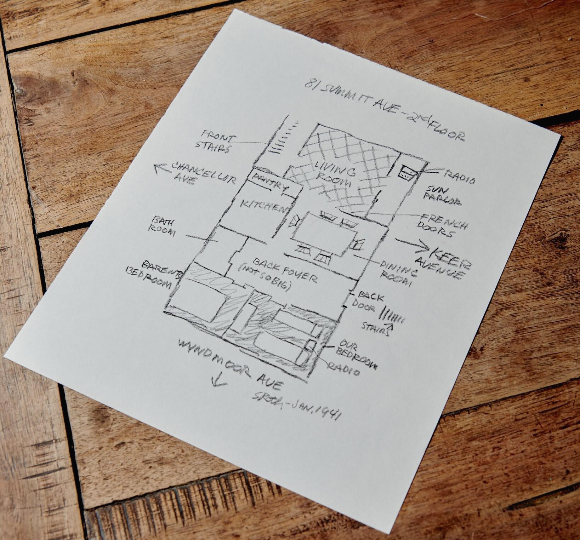 81 SUMMIT AVE - 2nd FLOOR
FRONT
STAIRS
← CHANCELLOR
AVE
LIVING
ROOM
RADIO
SUN
PARLOR
PANTRY
KITCHEN
FRENCH
DOORS
→ KEER
AVENUE
BATH
ROOM
DINING
ROOM
BACK FOYER
(NOT SO BIG)
PARENTS
BEDROOM
BACK
DOOR
STAIRS
OUR
BEDROOM
RADIO
WYNDMOOR AVE
↓
- JAN. 1941